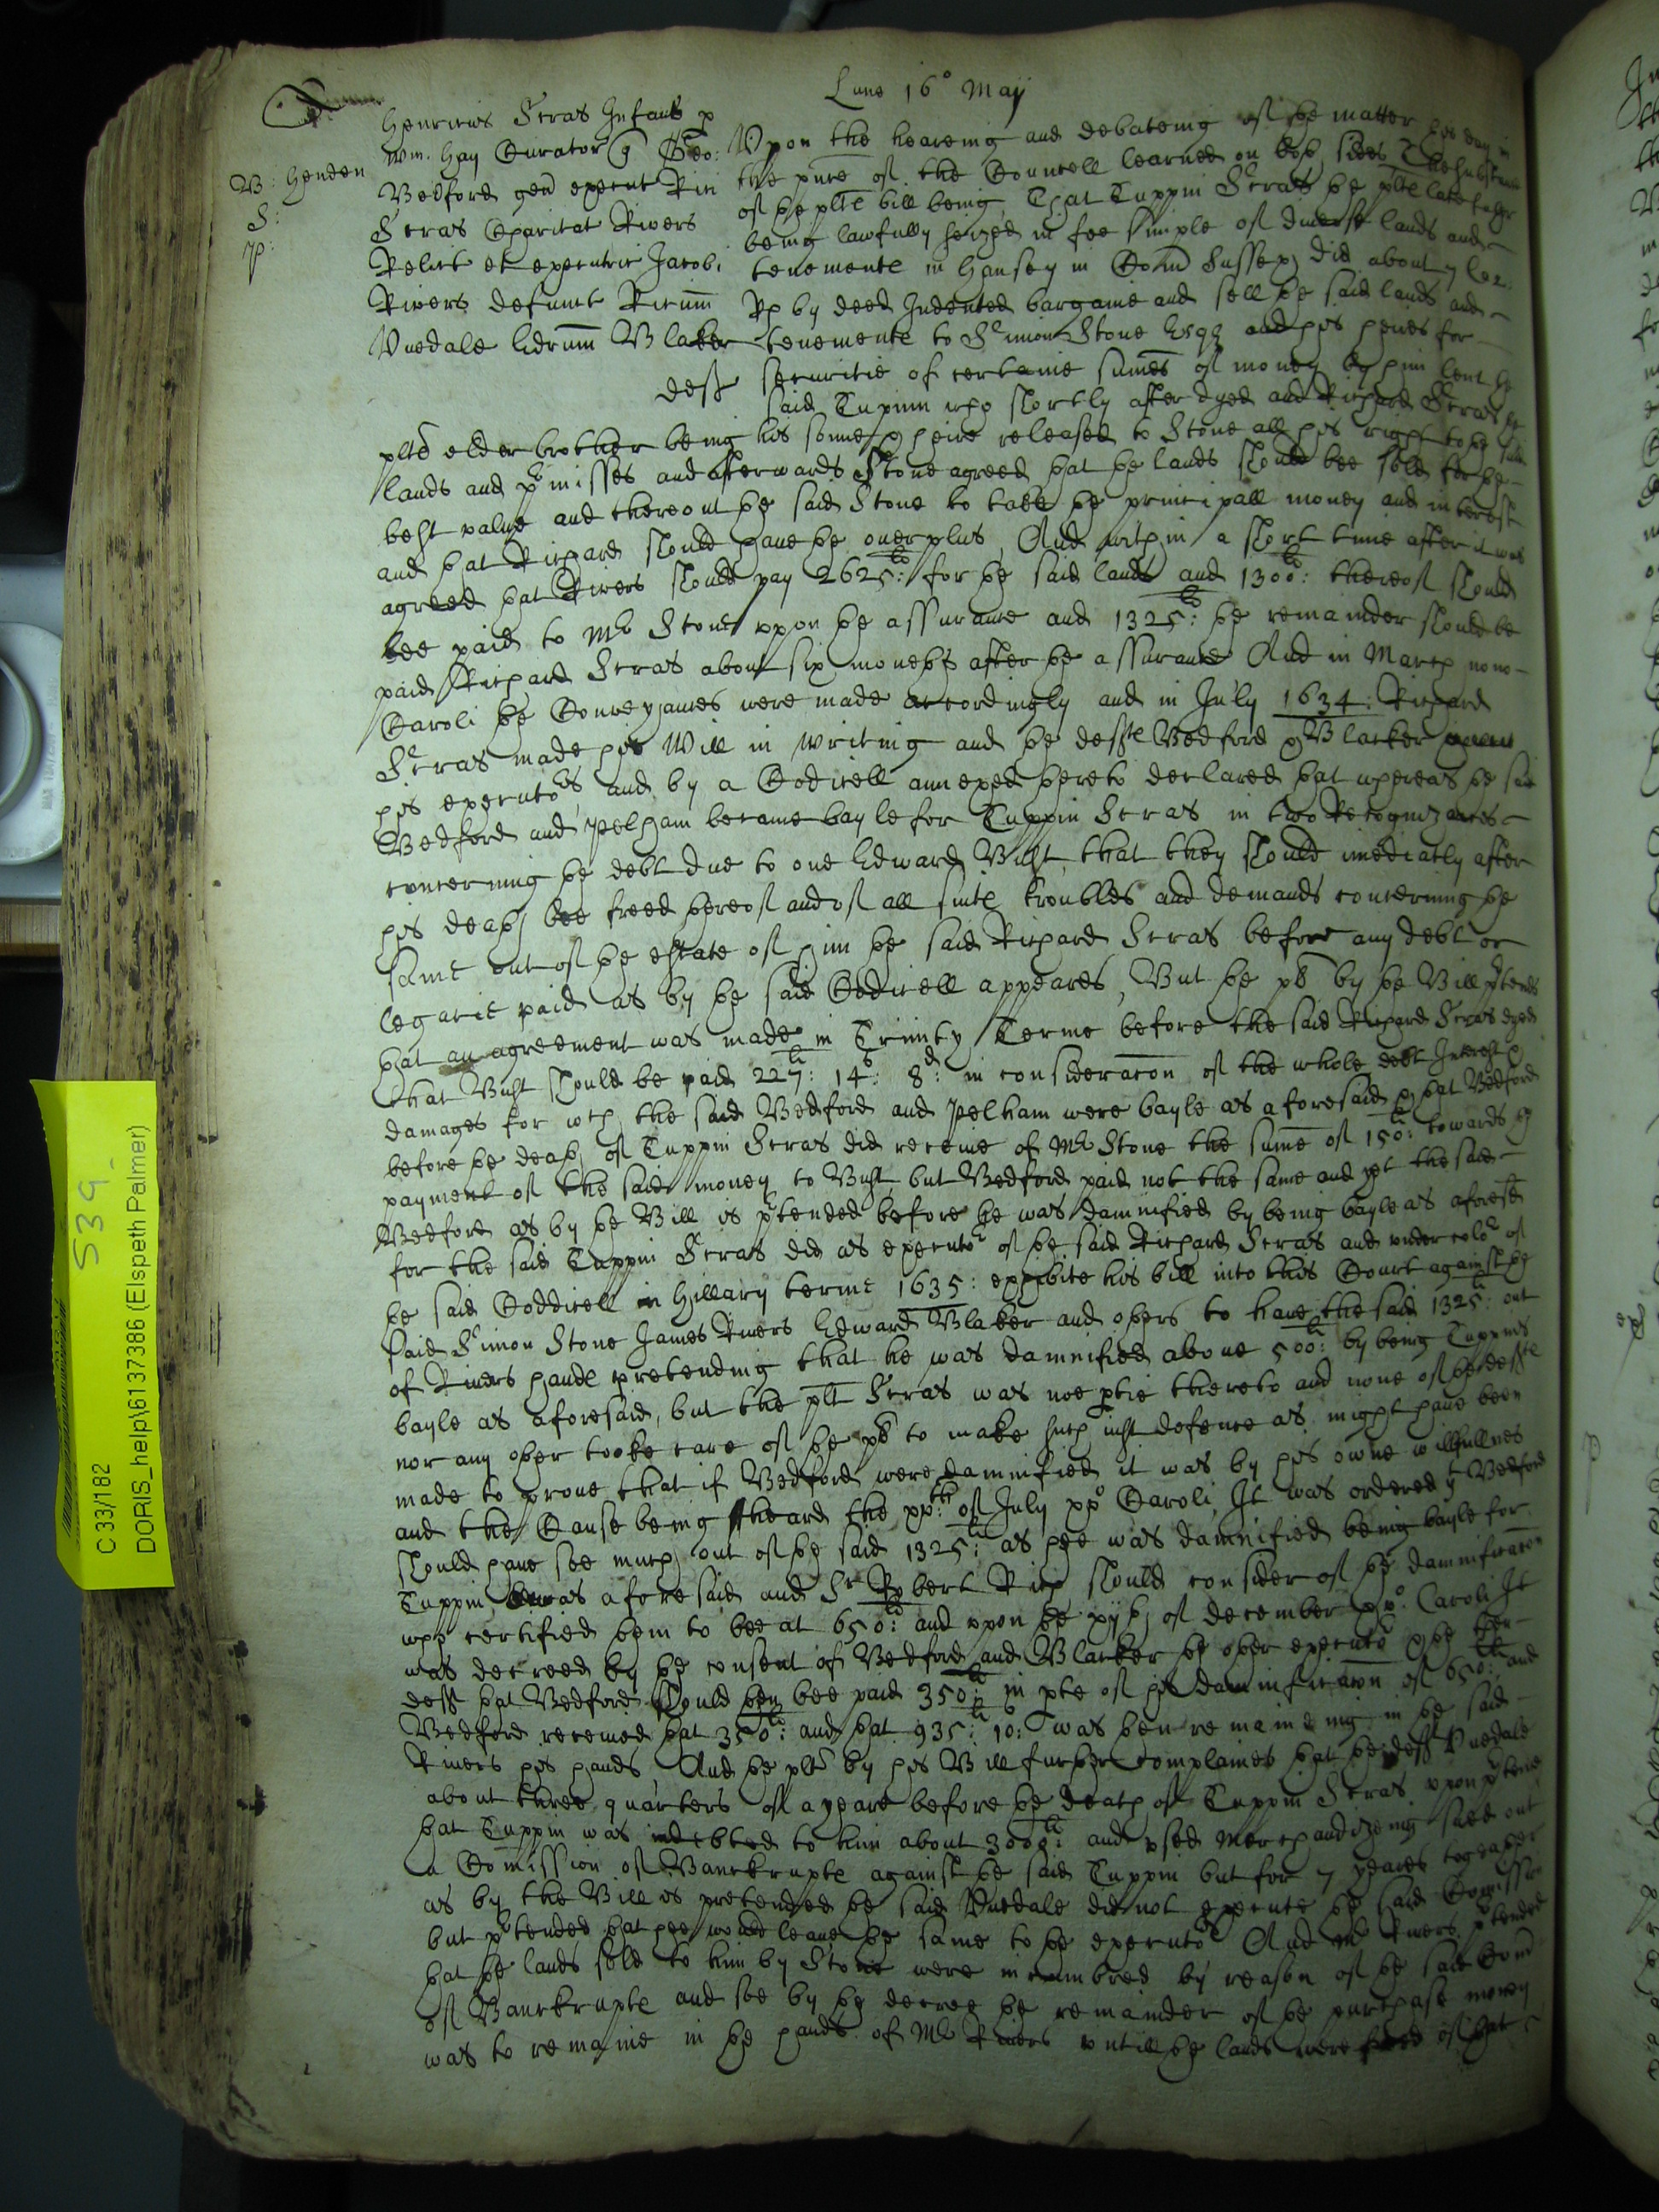 Lune 16° Maij
B: Henden
S:
p:
Henricus Scras Infans p
Wm. Hay Curator q Geo:
Bedford gen execut Rici
Scras Charitat Rivers
Relict et executric Jacobi
Rivers defunct Ricum
Uvedale Edrum Blaker
deft
Vpon the heareing and debateing of the matter this day in
the pnce of the Councell learned on both sides The substance
of the plts bill being, That Tuppin Scras the plts late father
being lawfully seized in fee simple of diverse lands and
tenemente in Hansey in Com Sussex did about
Rx by deed Indented bargaine and sell the said lands and
tenemente to Simon Stone Esqz and his heires for
securitie of certaine sumes of money by him lent the
said Tuppin who shortly after dyed and Richard Scras the
plts elder brother being his sonne & heire released to Stone all his right to the said
lands and pmisses and afterwards Stone agreed that the lands should bee sold for the
best value and thereout the said Stone to take the principall money and interest
and that Richard should have the overplus, And within a short time after it was
agreed that Rivers should pay 2625li: for the said lands and 1300li: thereof should
bee paid to Mr Stone vpon the assurance and 1325li: the remainder should be
paid Richard Scras about six moneths after the assurance And in March nono
Caroli the Conveyances were made accordingly and in July 1634: Richard
Scras made his Will in writing and the defte Bedford & Blacker
his executors, and by a Codicell annexed thereto declared that whereas the said
Bedford and Pelham became bayle for Tuppin Scras in two Recognizances
concerning the debt due to one Edward Bust, that they should imediatly after
his death bee freed thereof and of all suite troubles and demands concerning the
same out of the estate of him the said Richard Scras before any debt or
legacie paid as by the said Codicell appeares, But the plt by the Bill ptends
that an agreement was made in Trinity Terme before the said Richard Scras dyed
that Bust should be paid 227li: 14s: 8d: in consideracon of the whole debt Interest &
damages for wch the said Bedford and Pelham were bayle as aforesaid & that Bedford
before the death of Tuppin Scras did receive of Mr Stone the sume of 150li: towards the
payment of the said money to Bust, but Bedford paid not the same and yet the said
Bedford as by the Bill is ptended before he was damnified by being bayle as aforesd
for the said Tuppin Scras did as executor of the said Richard Scras and under color of
the said Coddicell in Hillary terme 1635: exhibite his bill into this Court against the
said Simon Stone James Rivers Edward Blaker and others to have the said 1325li: out
of Rivers hande pretending that he was damnified above 500li: by being Tuppins
bayle as aforesaid, but the plt Scras was noe ptie thereto and none of the defte
nor any other tooke care of the plt to make such iust defence as might have been
made to prove that if Bedford were damnified it was by his owne willfullnes
and the Cause being heard the xxth: of July xx° Caroli, It was ordered yt Bedford
should have soe much out of the said 1325li: as hee was damnified being bayle for
Tuppin Scras aforesaid and Sr Robert Rich should consider of the damnificacon
who certified them to bee at 650li: and vpon the xijth of December xx°: Caroli It
was decreed by the consent of Bedford and Blacker the other executor & the other
deft that Bedford should then bee paid 350li: in pte of his damnificacon of 650li: and
Bedford received that 350li: and that 935li: 10s: was then remaineing in the said
Rivers his hands, And the plt by his Bill further complaines that the deft Uvedale
about three quarters of a yeare before the death of Tuppin Scras vpon ptence
that Tuppin was indebted to him about 3000li: and vsed Merchandizeing sued out
a Comission of Banckrupte against the said Tuppin but for 7 yeares togeather
as by the Bill is pretended the said Uvedale did not execute the said Comission
but ptended that hee would leave the same to the executors And Mr Rivers ptended
that the lands sold to him by Stone were incumbred by reason of the said Com
of Banckrupte and soe by the decree the remainder of the purchase money
was to remaine in the hands of Mr Rivers vntill the lands were freed of that
539
C 33/182
DORIS_help\6137386 (Elspeth Palmer)